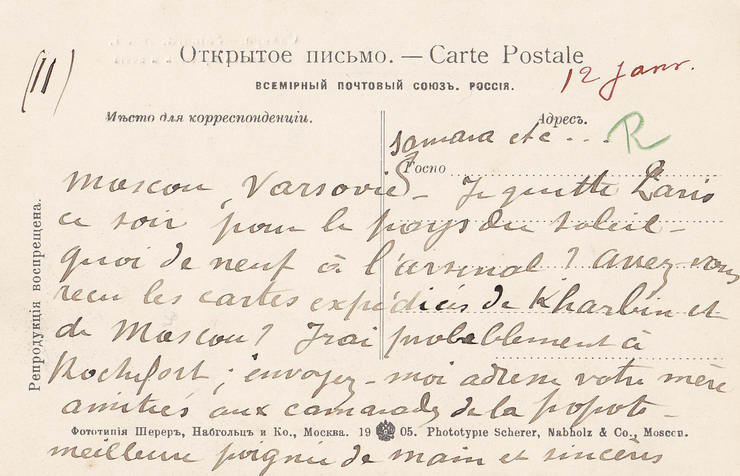 Открытое письмо. — Carte Postale
ВСЕМІРНЫЙ ПОЧТОВЫЙ СОЮЗЪ. РОССІЯ.
(11)
12 janv.
Мѣсто для корреспонденціи.
Адресъ.
R
Samara etc...
Госпо
Moscou, Varsovie – Je quitte Paris
ce soir pour le pays du soleil –
quoi de neuf à l'arsenal? avez-vous
recu les cartes expédiées de Kharbin et
de Moscou? J'irai probablement à
Rochefort; envoyez-moi adresse votre mère
amitiés aux camarades de la popote –
Фототипія Шереръ, Набгольцъ и Ко., Москва. 19 05. Phototypie Scherer, Nabholz & Co., Moscou.
meilleure poignée de main et sincères
Репродукція воспрещена.